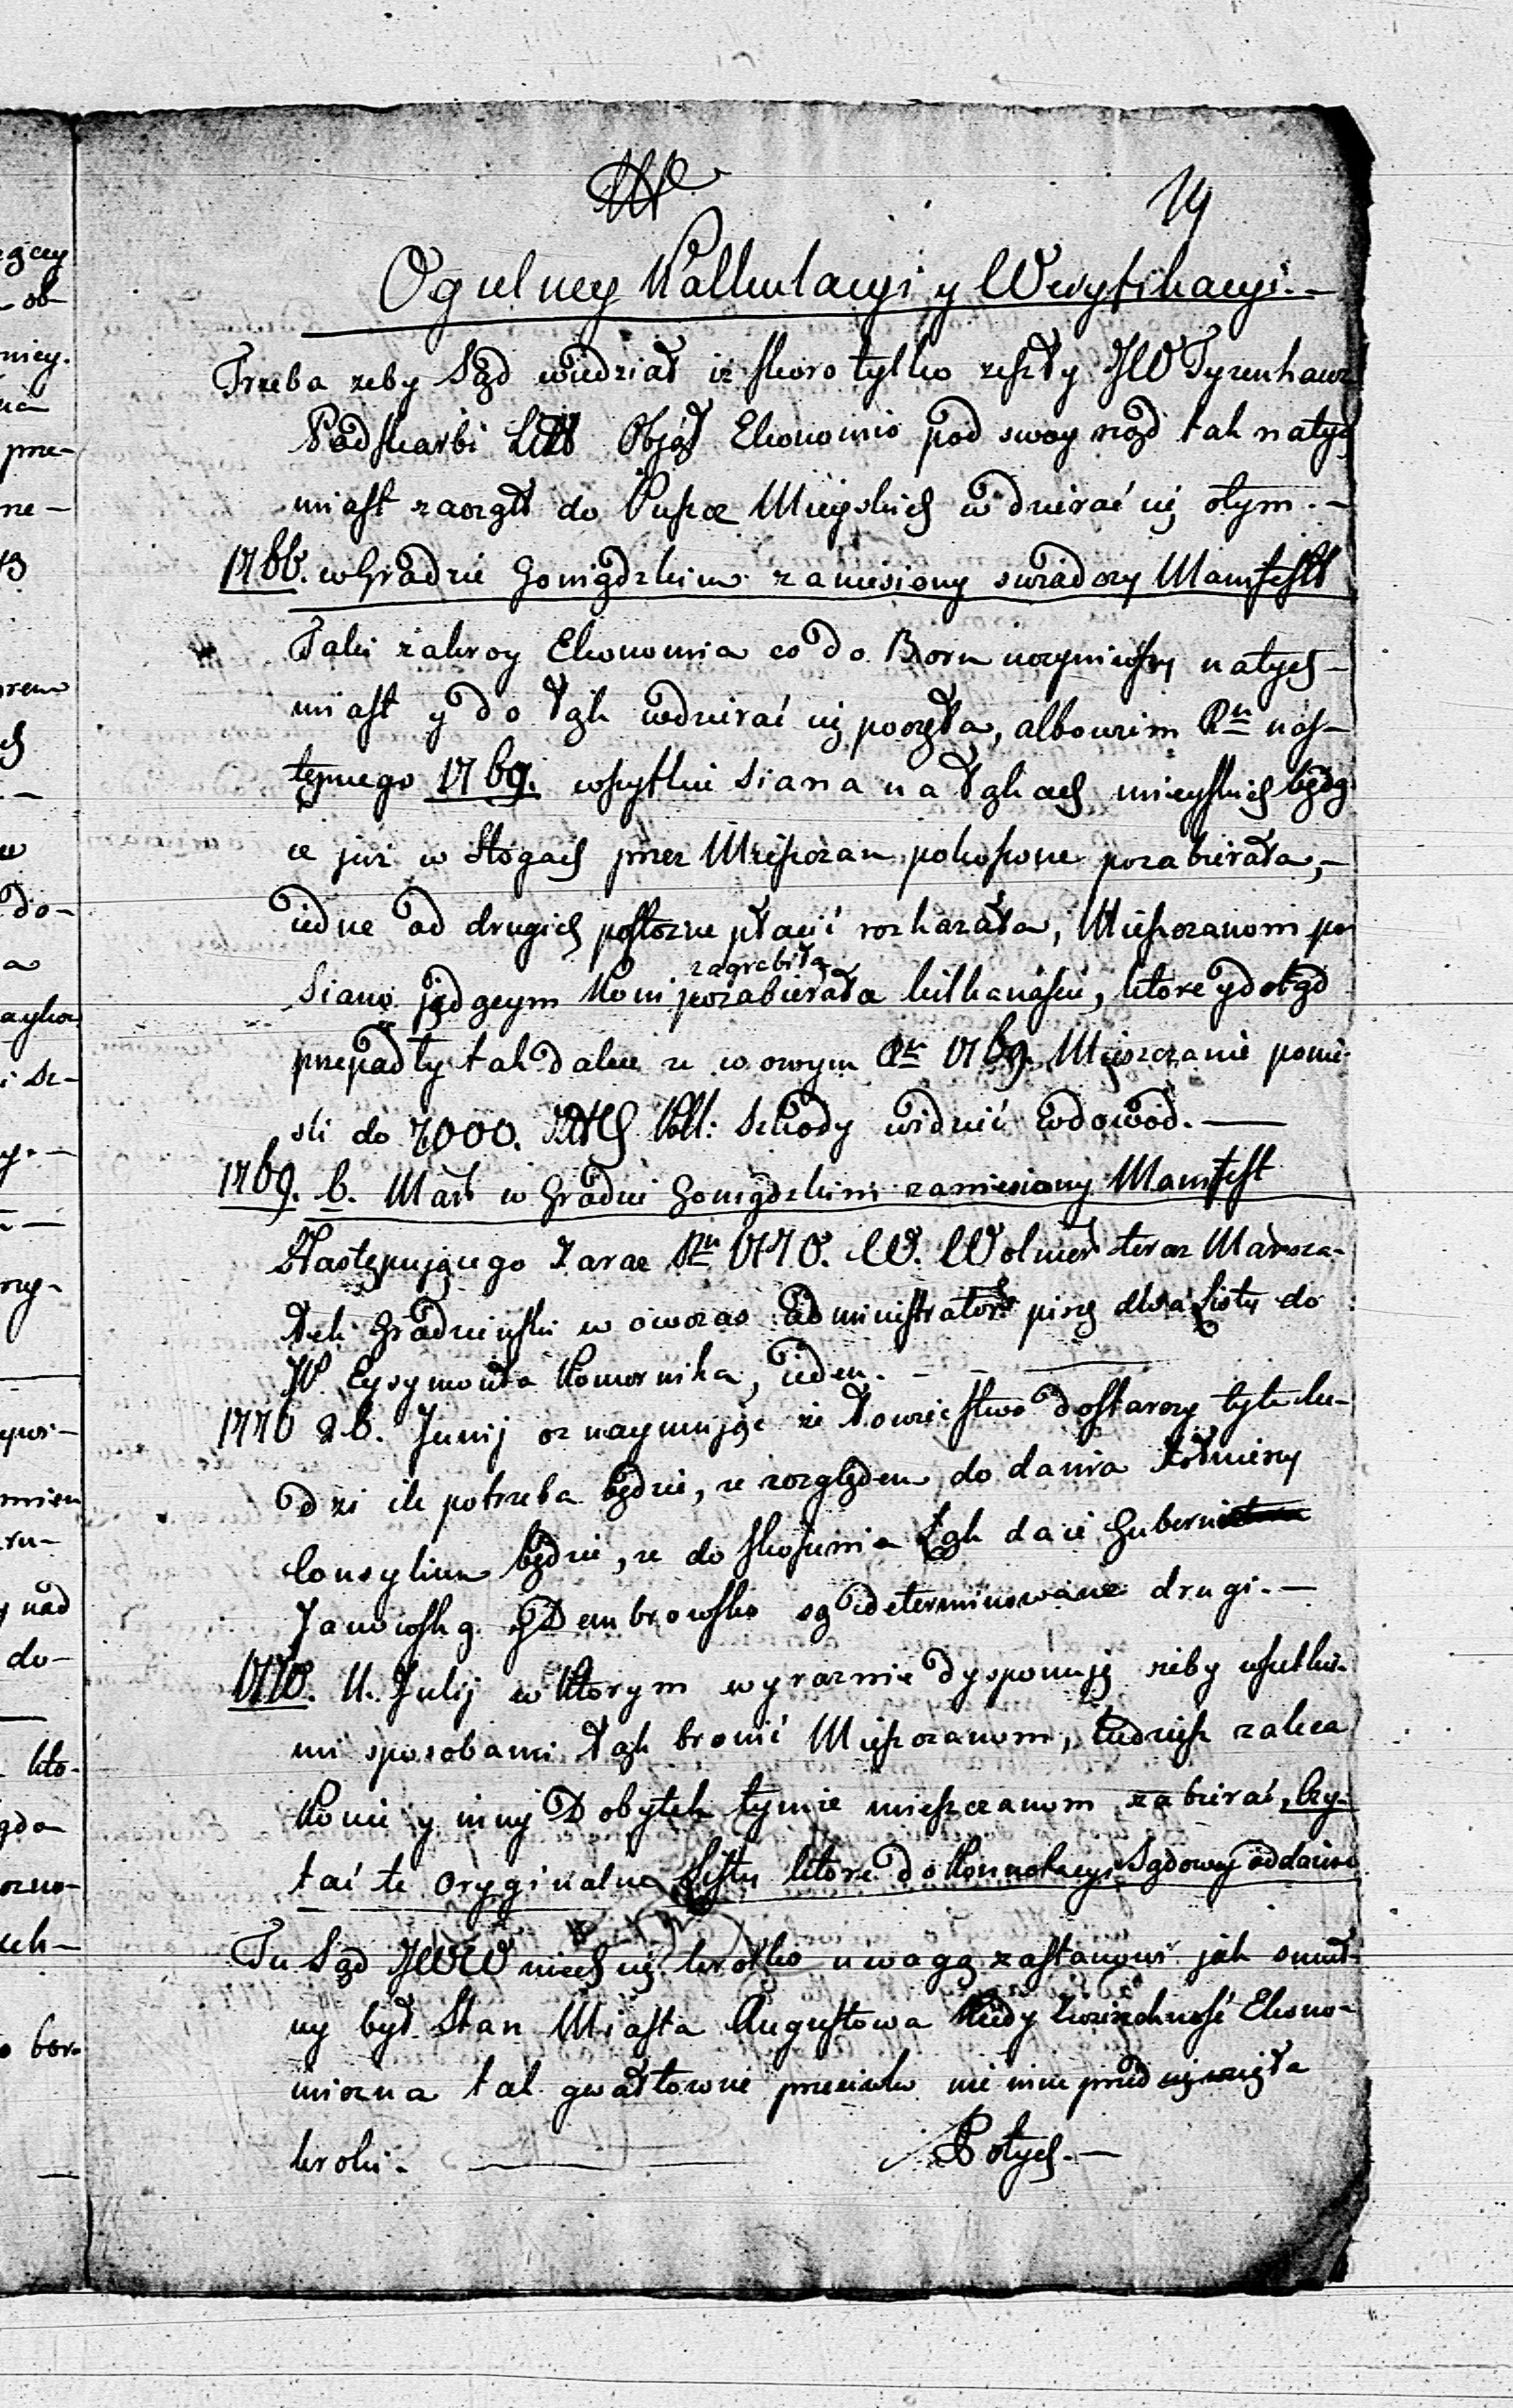 14
Ogulney Kalkulacyi y Weryfikacyi.—
Trzeba zeby Sąd wiedział iż skoro tylko zeszły JW Tyzenhauz
Podskarbi Litt Objął Ekonomię pod swoy rząd tak natych
miast zaczął do Puszcz Mieyskich wdzierać się o tym.—
1766. w Grodzie Goniądzkim zaniesiony swiadczy Manifest
Taki zakroy Ekonomia co do Boru uczyniwszy natych-
miast y do Łąk wdzierać się poczęła, albowiem Rku nas-
tępnego 1769. wszystkie siana na Łąkach mieyskich będą-
ce już w Stogach przez Mieszczan pokoszone pozabierała,—
iedne od drugich postoznie płacić rozkazała, Mieszczanom po
zagrabiła
Siano jadącym Koni pozabierała kilkanaście, ktore y dotąd
przepadły tak dalece ze w owym Rku 1769. Mieszczanie ponie-
sli do 7000. Poll: Szkody widzieć w dowod.—
1769. 6. Mar w Grodzie Goniądzkim zaniesiony Manifest
Następującego Zaraz Rku 1770. W. Wolmer teraz Marsza-
łek Grodzienski w owczas Administrator pisze dwa Listy do
JP. Eysymonta Komornika, ieden.—
1770 26. Junij oznaymując że Łowiectwo dostarczy tyle lu-
dzi ile potrzeba będzie, ze względem dodania Żołnierzy
Consylium będzie, ze do skoszenia Łąk dwie Gubernie
Janowska y Dembrowska są determinowane drugi.—
1770. 11. Julij w ktorym wyraznie dysponuje zeby wszelkie-
mi sposobami Łąk bronić Mieszczanom, tudziesz zaleca
Konie y inny Dobytek tymże mieszczanom zabierać, Czy-
tać te Oryginalne Listy ktore do Konnotacyi Sądowey oddaie
Tu Sąd JWW niech się krotko uwagą zastanowi jak smut-
ny był Stan Miasta Augustowa kiedy Zwierzchność Ekono-
miczna tak gwałtownie przeciwko nie mu przedsięwzięła
kroki.—
Potych.—